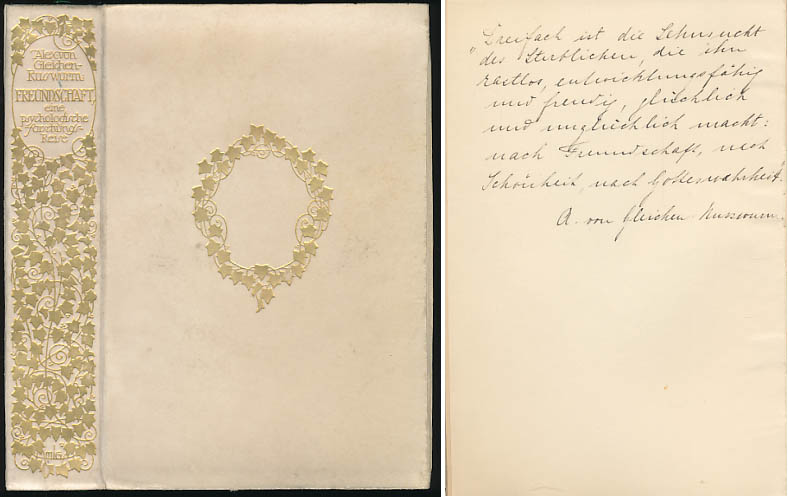 Alex. von
Gleichen-
Russwurm
FREUNDSCHAFT,
eine
psychologische
Forschungs-
Reise
"Dreifach ist die Sehnsucht
des Sterblichen, die ihn
rastlos, entwicklungsfähig
und freudig, glücklich
und unglücklich macht:
nach Freundschaft, nach
Schönheit, nach Gotteswahrheit."
A. von Gleichen Russwurm.